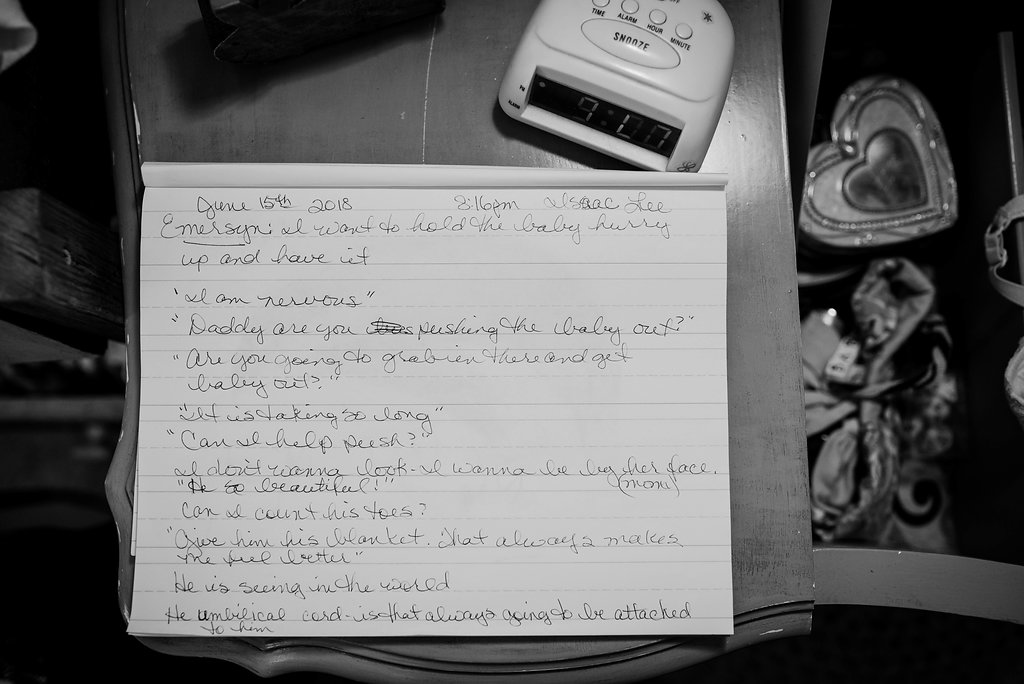 TIME ALARM HOUR MINUTE
SNOOZE
ALARM
June 15th 2018 8:16pm Issac Lee
Emersyn: I want to hold the baby hurry
up and have it
"I am nervous"
"Daddy are you pushing the baby out?"
"Are you going to grab in there and get
baby out?"
"It is taking so long"
"Can I help push?"
I don't wanna look - I wanna be by her face.
(mom)
"He so beautiful!"
Can I count his toes?
"Give him his blanket. That always makes
me feel better"
He is seeing in the world
He umbilical cord - is that always going to be attached
to him